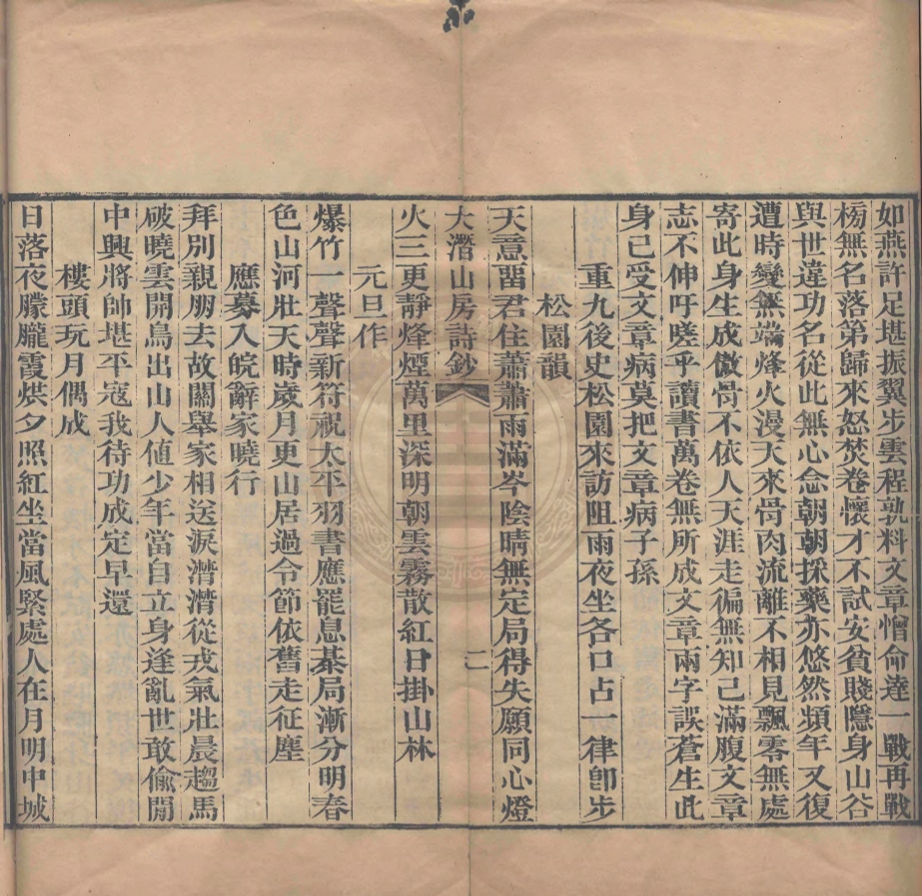 如燕許足堪振翼步雲程孰料文章憎命達一戰再戰
榜無名落第歸來怒焚卷懷才不試安貧賤隱身山谷
與世違功名從此無心念朝朝採藥亦悠然頻年又復
遭時變無端烽火漫天來骨肉流離不相見飄零無處
寄此身生成傲骨不依人天涯走徧無知己滿腹文章
志不伸吁嗟乎讀書萬卷無所成文章兩字誤蒼生此
身已受文章病莫把文章病子孫
重九後史松園來訪阻雨夜坐各口占一律卽步
松園韻
天意畱君住蕭蕭雨滿岑陰晴無定局得失願同心燈
大潛山房詩鈔
二
火三更靜烽煙萬里深明朝雲霧散紅日掛山林
元旦作
爆竹一聲聲新符祝太平羽書應罷息棊局漸分明春
色山河壯天時歲月更山居過令節依舊走征塵
應募入皖辭家曉行
拜別親朋去故關舉家相送淚潸潸從戎氣壯晨趨馬
破曉雲開鳥出山人値少年當自立身逢亂世敢偷閒
中興將帥堪平寇我待功成定早還
樓頭玩月偶成
日落夜朦朧霞烘夕照紅坐當風緊處人在月明中城